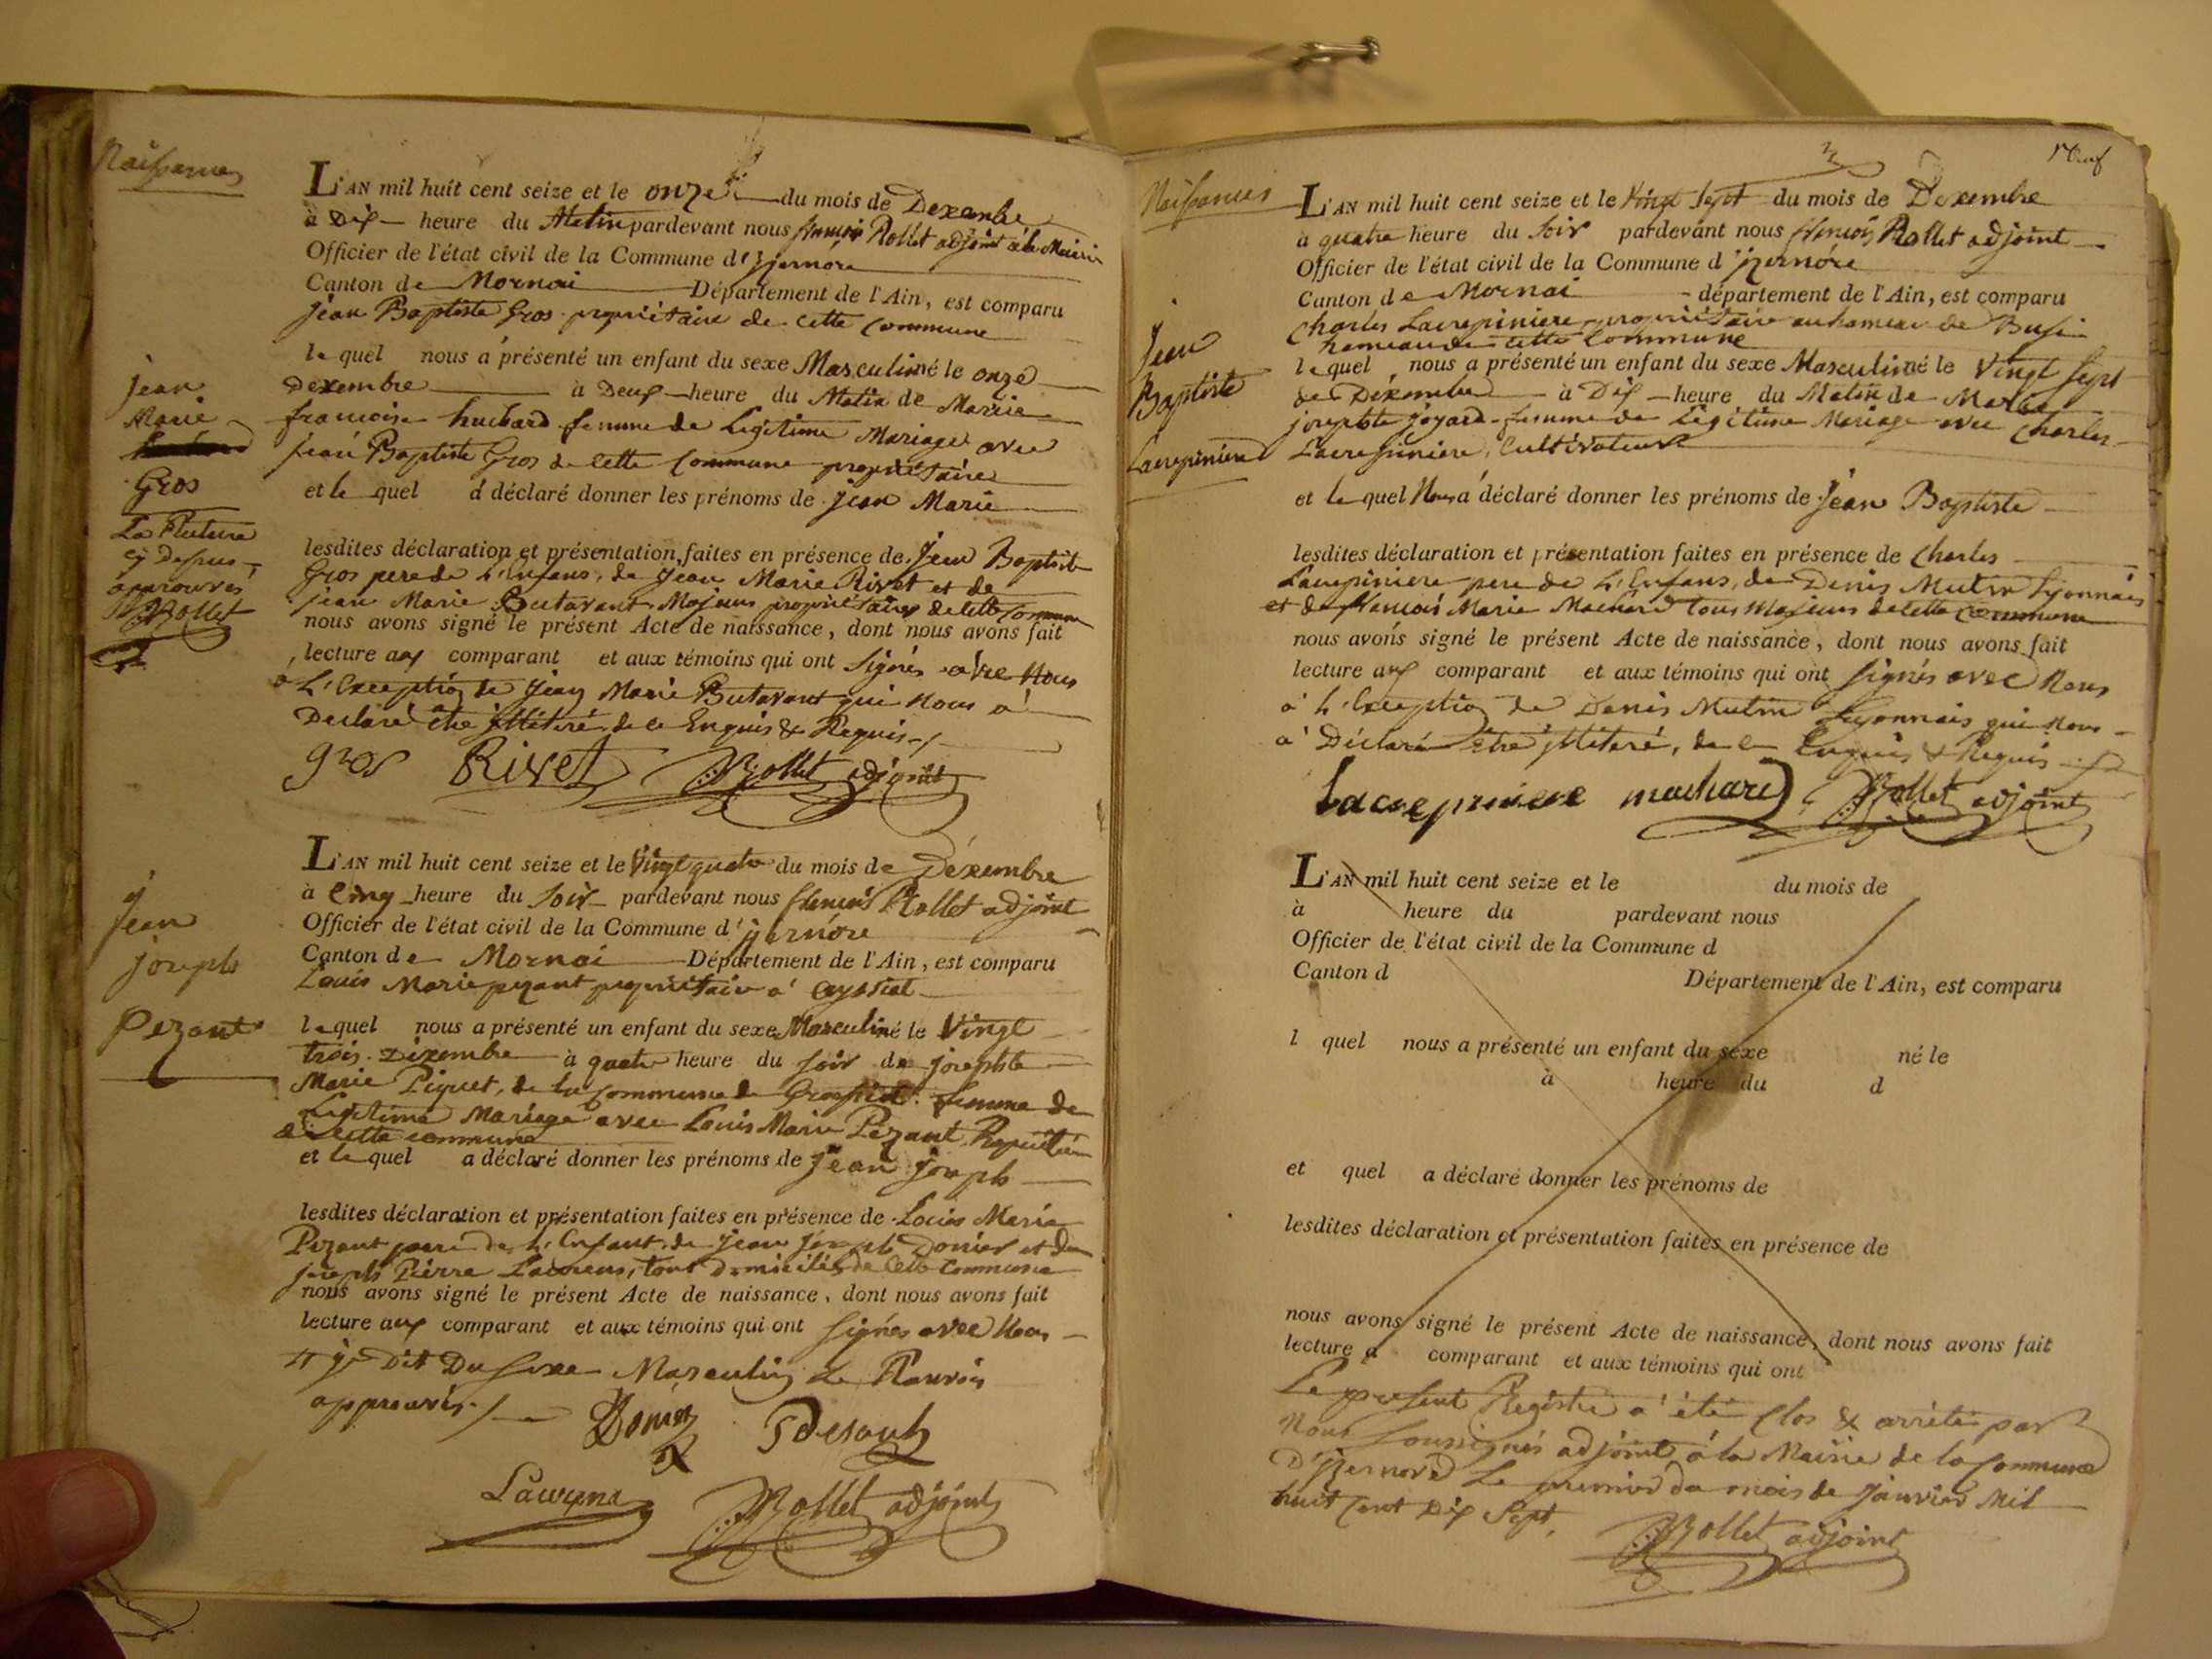 Naissances
L'AN mil huit cent seize et le onze du mois de Dexembre
à Dix heure du Matin pardevant nous françois Rollet adjoint à la Mairie
Officier de l'état civil de la Commune d'izernore
Canton de Mornai Département de l'Ain, est comparu
jean Baptiste Gros propriétaire de cette Commune
le quel nous a présenté un enfant du sexe Masculin né le onze
Dexembre à Deux heure du Matin de Marie
francoise huchard femme de Legitime Mariage avec
jean Baptiste Gros de cette Commune propriétaire
et le quel a déclaré donner les prénoms de jean Marie
lesdites déclaration et présentation faites en présence de Jean Baptiste
Gros pere de L'Enfans, de Jean Marie Rivet et de
jean Marie Butavant Majeurs propriétaires de cette Commune
nous avons signé le présent Acte de naissance, dont nous avons fait
lecture aux comparant et aux témoins qui ont Signés avec Nous
a L'Exception de Jean Marie Butavant qui Nous a
Declaré être illitéré de ce Enquis & Requis
jean
Marie
Gros
La Rature
cy Dessus
approuvés
Rollet
gros Rivet Rollet adjoint
L'AN mil huit cent seize et le Vingt quatre du mois de Déxembre
à Cinq heure du Soir pardevant nous francois Rollet adjoint
Officier de l'état civil de la Commune d'izernore
Canton de Mornai Département de l'Ain, est comparu
Louis Marie pezant propriétaire a Ceyssiat
le quel nous a présenté un enfant du sexe Masculin né le Vingt
trois Déxembre à quatre heure du soir de josephte
Marie Piquet, de la Commune de Groissiat femme de
Legitime Mariage avec Louis Marie Pezant Propriétaire
de cette commune
et le quel a déclaré donner les prénoms de jean joseph
lesdites déclaration et présentation faites en présence de Louis Marie
Pezant pere de L'Enfant, de jean joseph Donier et de
joseph Pierre Lacroens, tous Domiciliés de cette Commune
nous avons signé le présent Acte de naissance, dont nous avons fait
lecture aux comparant et aux témoins qui ont signés avec Nous
Dit Du sexe Masculin Le
approuvés
jean
joseph
Pezant
Rollet adjoint
Naissances
L'AN mil huit cent seize et le Vingt Sept du mois de Dexembre
à quatre heure du Soir pardevant nous françois Rollet adjoint
Officier de l'état civil de la Commune d izernore
Canton de Mornai département de l'Ain, est comparu
Charles Lacrepiniere propriétaire au hameau de Bussi
hameau de cette Commune
le quel nous a présenté un enfant du sexe Masculin né le Vingt Sept
de Dexembre à Dix heure du Matin de Marie
josephte joyard femme de Légitime Mariage avec Charles
Lacrepiniere, Cultivateur
et le quel Nous a déclaré donner les prénoms de Jean Baptiste
lesdites déclaration et présentation faites en présence de Charles
Lacrepiniere pere de L'Enfans, de Denis Mutin Lyonnais
et de francois Marie Machard tous Majeurs de cette Commune
nous avons signé le présent Acte de naissance, dont nous avons fait
lecture aux comparant et aux témoins qui ont signés avec Nous
a L'Exception de Denis Mutin Lyonnais qui Nous
a Déclaré être illitéré, de ce Enquis & Requis
Jean
Baptiste
Lacrepiniere
Lacrepiniere machard Rollet adjoint
L'AN mil huit cent seize et le du mois de
à heure du pardevant nous
Officier de l'état civil de la Commune d
Canton d Département de l'Ain, est comparu
l quel nous a présenté un enfant du sexe né le
à heure du d
et quel a déclaré donner les prénoms de
lesdites déclaration et présentation faites en présence de
nous avons signé le présent Acte de naissance, dont nous avons fait
lecture a comparant et aux témoins qui ont
Le present Registre a été Clos & arrété par
Nous Soussignés adjoint à la Mairie de la Commune
D'izernore Le premier du mois de Janvier Mil
huit Cent Dix Sept.
Rollet adjoint